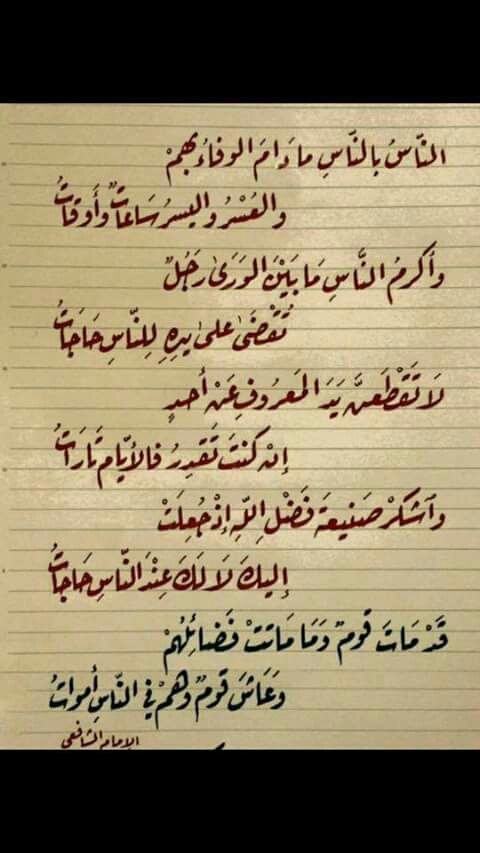 النَّاسُ بِالنَّاسِ مادَامَ الوفاءُ بهمْ
والعُسْرُ واليسرُ سَاعَاتٌ وأَوقاتُ
وأكرمُ النَّاسِ مَا بَيْنَ الوَرَىٰ رَجُلٌ
تُقْضَىٰ علىٰ يدِهِ لِلنَّاسِ حَاجَاتُ
لَا تَقْطَعنَّ يَدَ المَعروفِ عَنْ أَحدٍ
إنْ كنتَ تَقدِرُ فالأيّام تَارَاتُ
وٱشكرْ صَنيعةَ فَضْلِ اللهِ إذْ جُعِلَتْ
إليكَ لَا لَكَ عِنْدَ النَّاسِ حَاجَاتُ
قَدْ مَاتَ قومٌ وَمَا مَاتتْ فَضائِلُهُمْ
وَعَاشَ قومٌ وهمْ في النَّاسِ أمواتُ
الإمام الشافعي